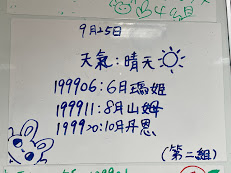 9月25日
天氣:晴天
199906:6月瑪姬
199911:8月山姆
199920:10月丹恩
(第二組)